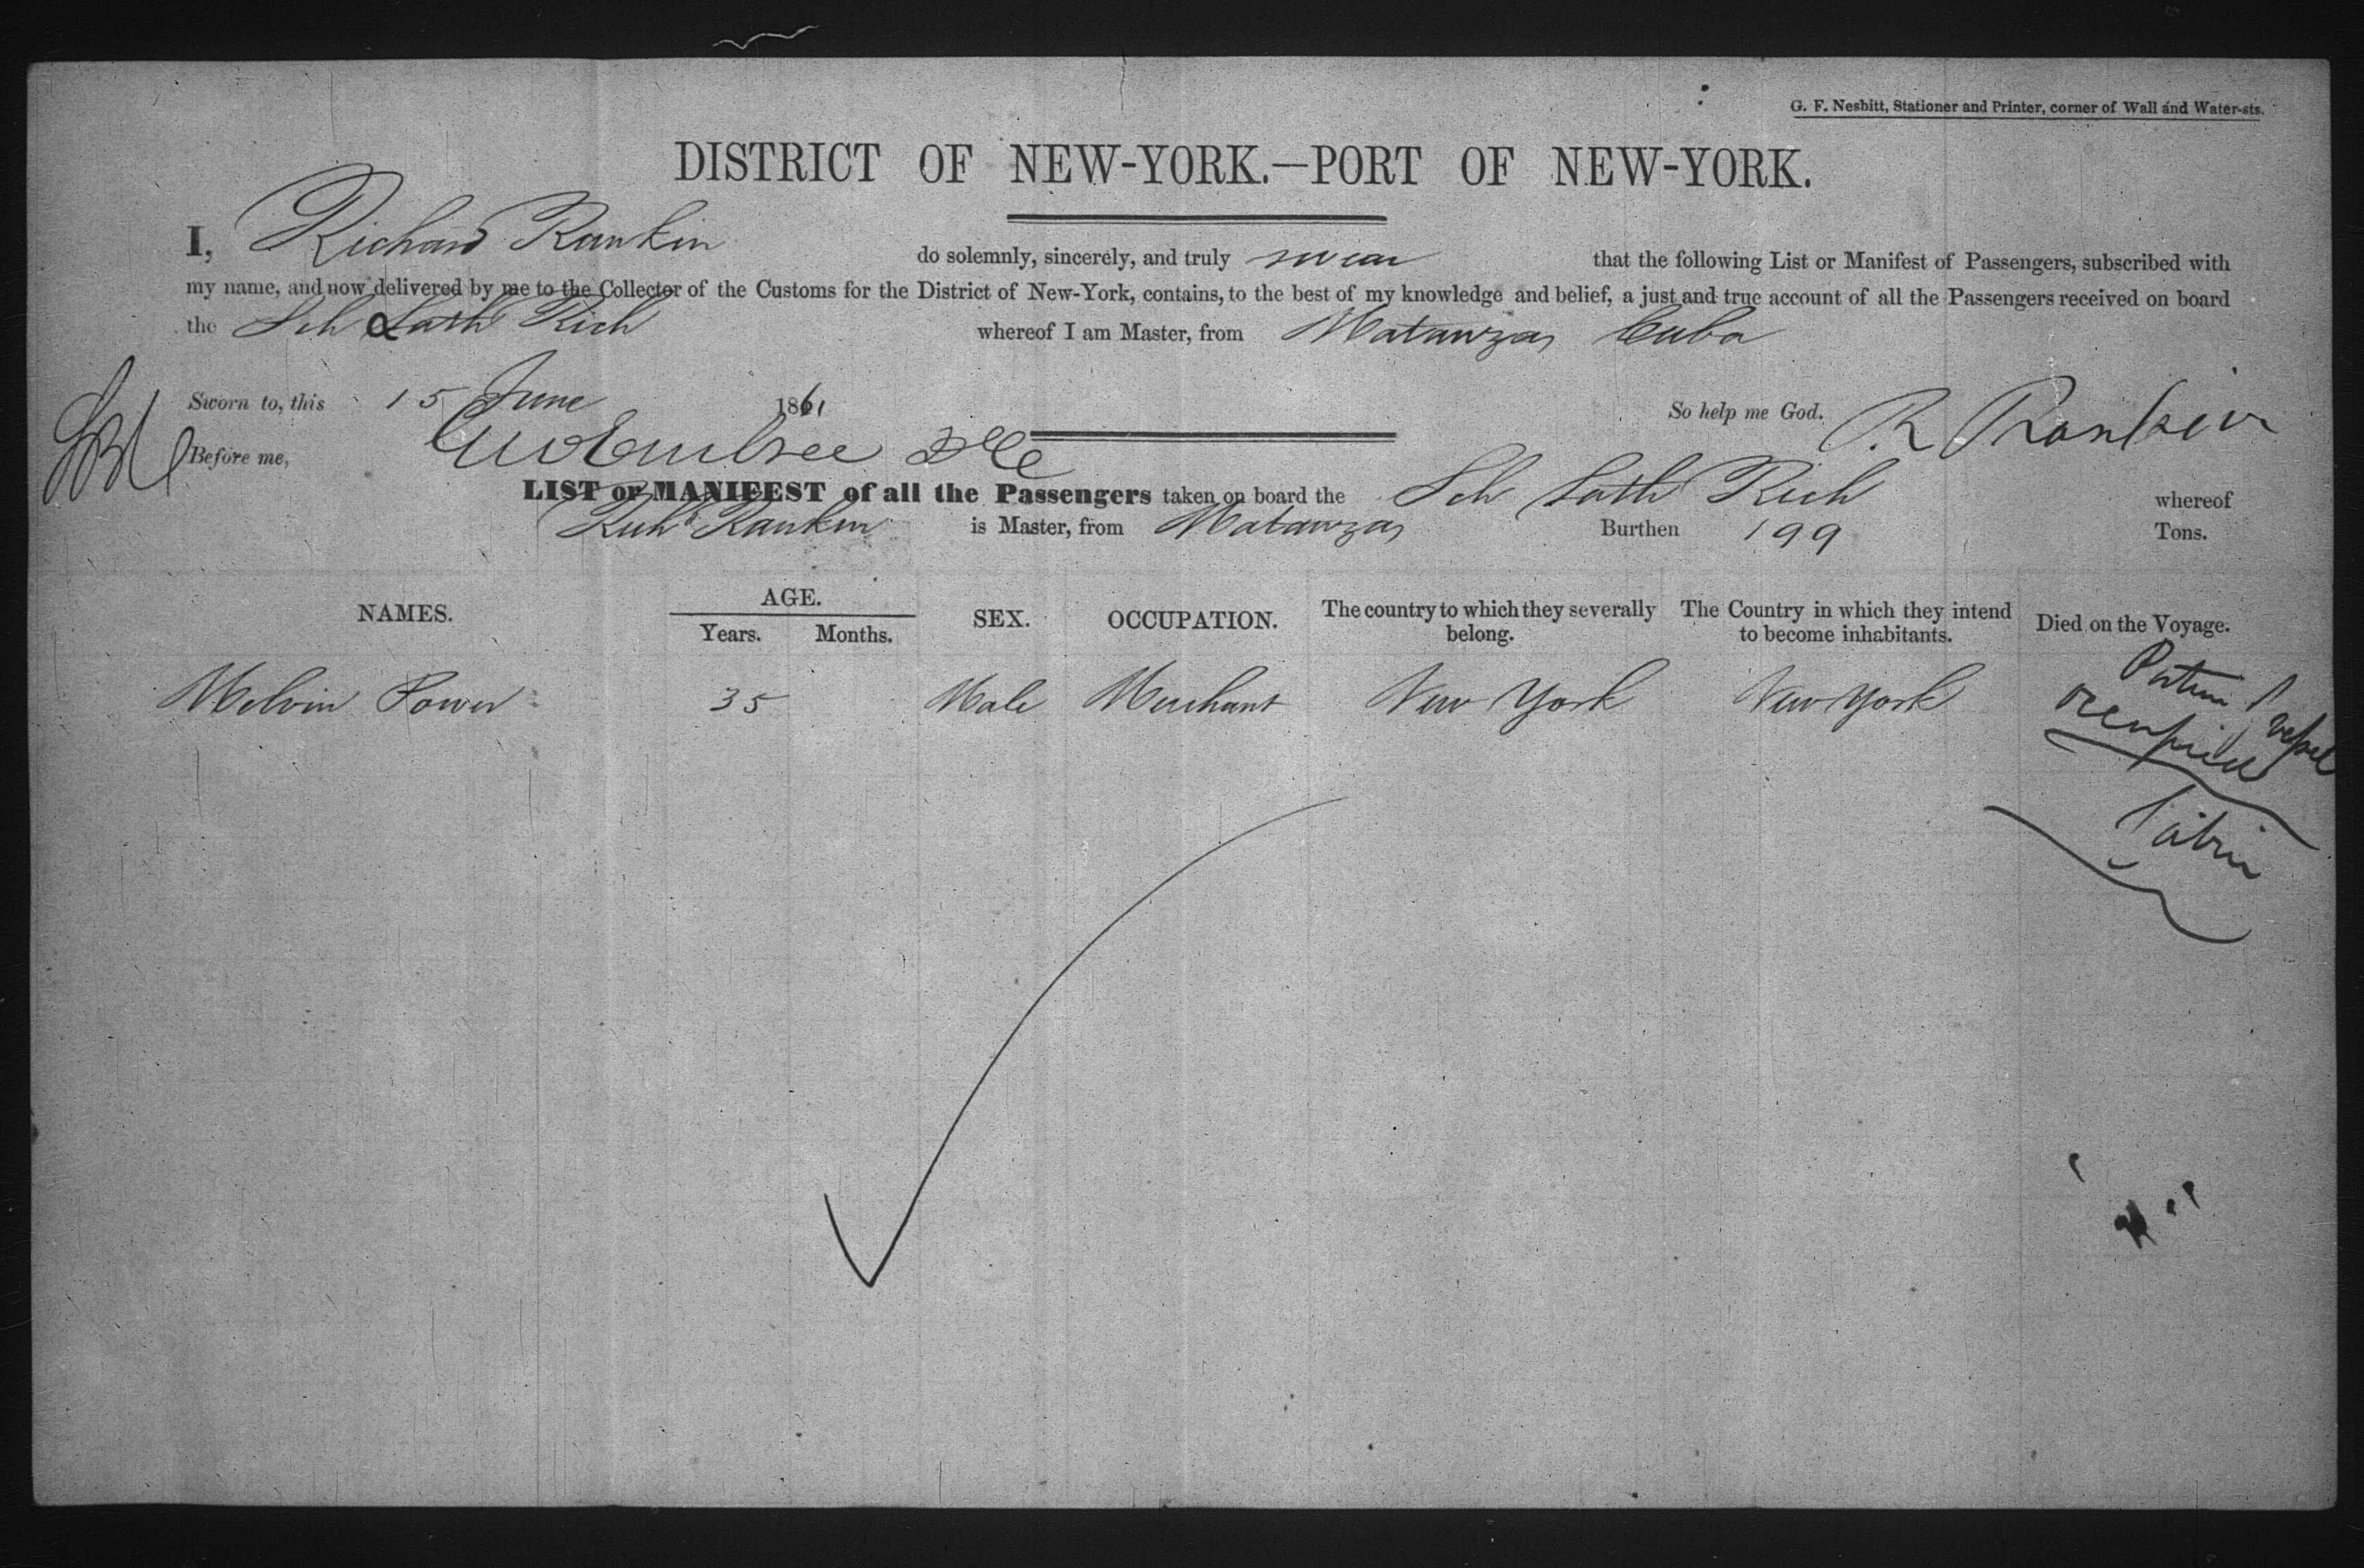 G. F. Nesbitt, Stationer and Printer, corner of Wall and Water-sts.
DISTRICT OF NEW-YORK.—PORT OF NEW-YORK.
I, Richard Rankin do solemnly, sincerely, and truly swear that the following List or Manifest of Passengers, subscribed with
my name, and now delivered by me to the Collector of the Customs for the District of New-York, contains, to the best of my knowledge and belief, a just and true account of all the Passengers received on board
the Sch Rich whereof I am Master, from Matanzas Cuba
Sworn to, this 15 June 1861 So help me God. R Rankin
Before me,
LIST or MANIFEST of all the Passengers taken on board the Sch Rich whereof
Richd Rankin is Master, from Matanzas Burthen 199 Tons.
NAMES. AGE. SEX. OCCUPATION. The country to which they severally belong. The Country in which they intend to become inhabitants. Died on the Voyage.
Years. Months.
Melvin Power 35 Male Merchant New York New York
Portion of vessel
occupied
Cabin